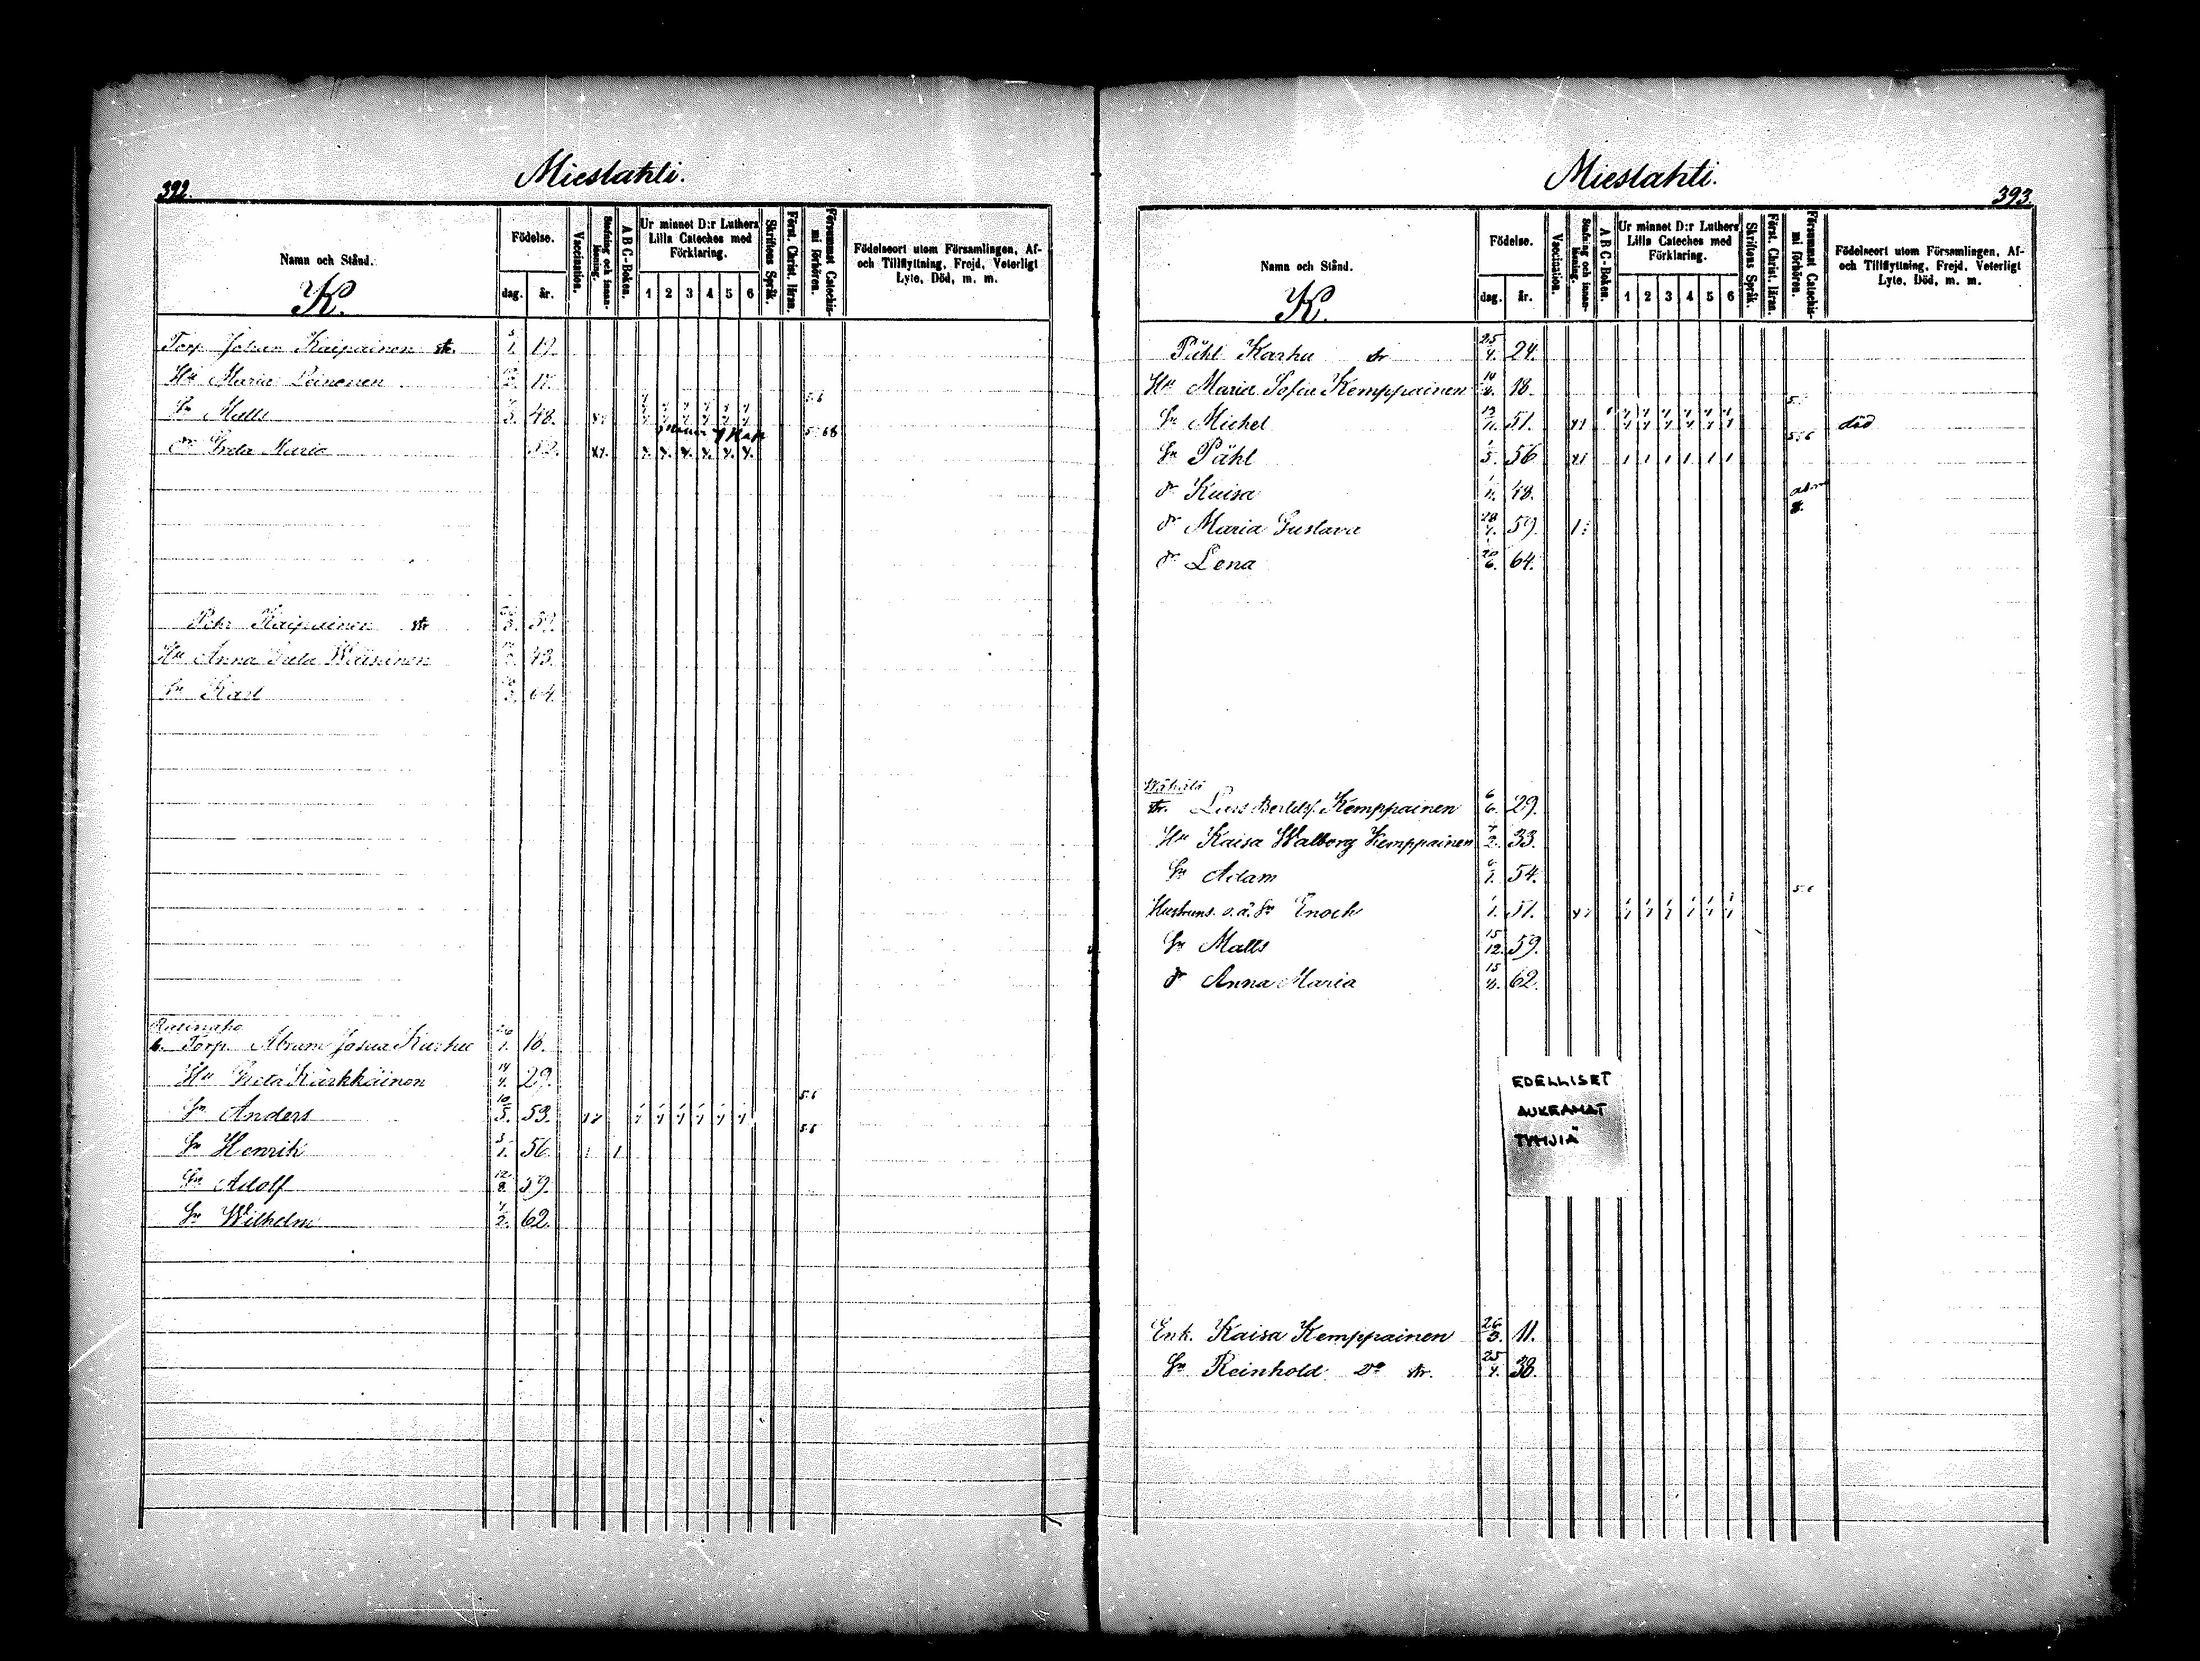 392.
Mieslahti.
Namn och Stånd.
K.
Födelse.
dag. år.
Vaccination.
Stafning och innan-läsning.
A B C-Boken.
Ur minnet D:r Luthers Lilla Cateches med Förklaring.
1 2 3 4 5 6
Skriftens Språk.
Först. Christ. läran.
Försummat Catechis-mi förhören.
Födelseort utom Församlingen, Af- och Tillflyttning, Frejd, Veterligt Lyte, Död, m. m.
Torp. Johan Kaipainen str.
Hu Maria Leinonen 17.
Sn Matts 48. 56
dr Greta Maria 52. 5 68
Pehr Kaipainen str
Hu Anna Greta Väisänen 43.
Sn Karl 64.
6. Torp. Abram Josua Karhu 26/1. 16.
Hu Greta Kärkkäinen 14/4. 29.
Sn Anders 10/5. 53. 56
Sn Henrik 3/1. 56. 56
Sn Adolf 12/8. 59.
Sn Wilhelm 62.
393.
Mieslahti.
Namn och Stånd.
K.
Födelse.
dag. år.
Vaccination.
Stafning och innan-läsning.
A B C-Boken.
Ur minnet D:r Luthers Lilla Cateches med Förklaring.
1 2 3 4 5 6
Skriftens Språk.
Först. Christ. läran.
Försummat Catechis-mi förhören.
Födelseort utom Församlingen, Af- och Tillflyttning, Frejd, Veterligt Lyte, Död, m. m.
Påhl Karhu str 25/4. 24.
Hu Maria Sofia Kemppainen 18.
Sn Michel 51. död
Sn Påhl 1/5. 56
dr Kaisa 48.
dr Maria Gustava 28/1. 59.
dr Lena 20/6. 64.
str. Lars Bertilsf. Kemppainen 6/6. 29.
Hu Kaisa Walborg Kemppainen 7/2. 33.
Sn Adam 54.
Hustruns o.ä. Sn Enoch 51. 56
Sn Matts 15/12. 59.
dr Anna Maria 62.
EDELLISET
AUKEAMAT
TYHJIÄ
Enk. Kaisa Kemppainen 26/3. 11.
Sn Reinhold Do str. 25/4. 38.